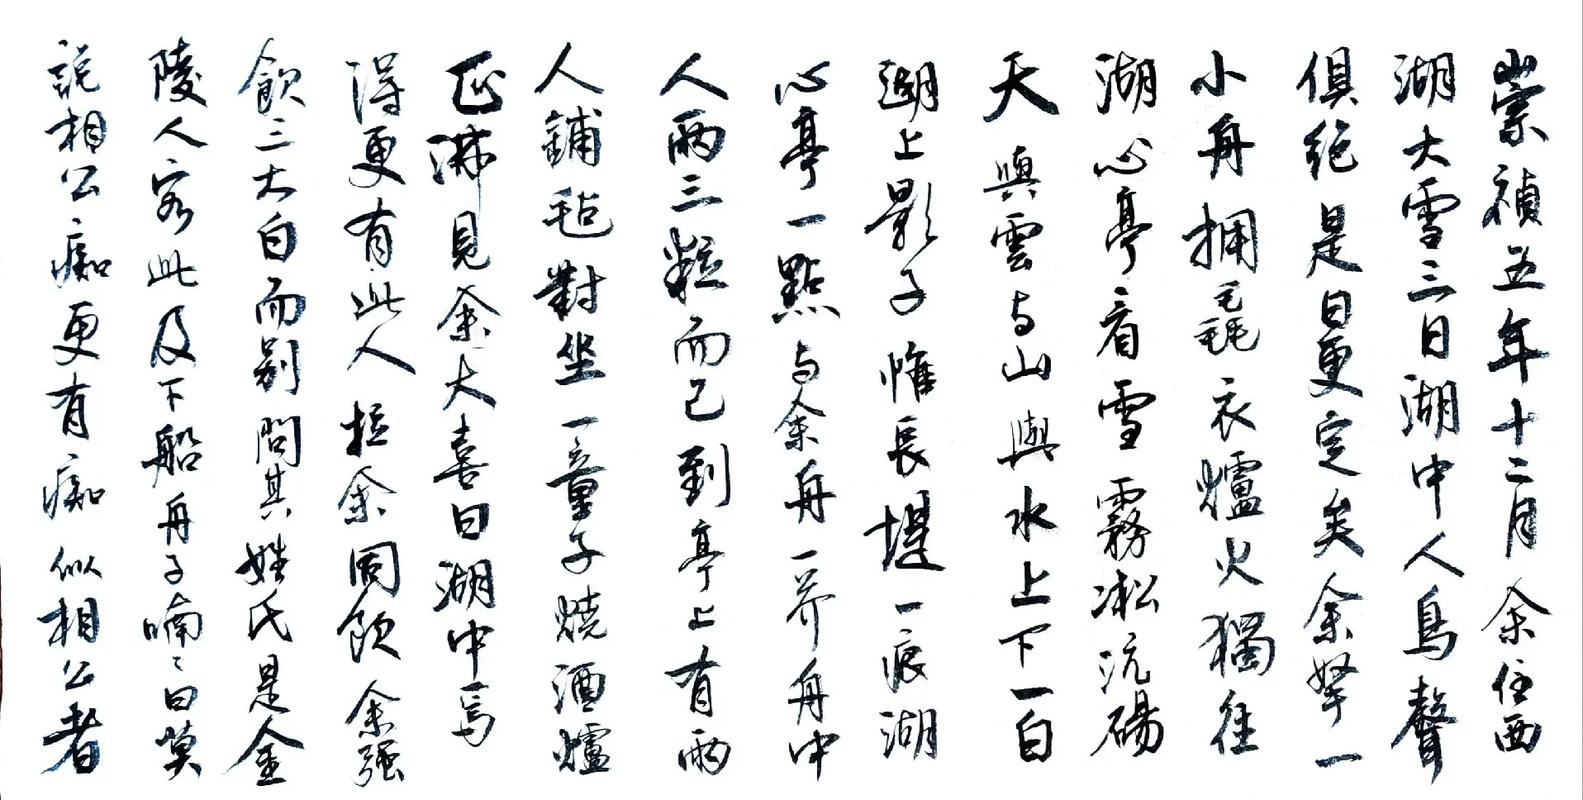 崇禎五年十二月余住西
湖大雪三日湖中人鳥聲
俱絕是日更定矣余拏一
小舟擁毳衣爐火獨往
湖心亭看雪霧凇沆碭
天與雲与山與水上下一白
湖上影子惟長堤一痕湖
心亭一點与余舟一芥舟中
人兩三粒而已到亭上有兩
人鋪毡對坐一童子燒酒爐
正沸見余大喜曰湖中焉
得更有此人拉余同飲余强
飲三大白而别問其姓氏是金
陵人客此及下船舟子喃々曰莫
説相公痴更有痴似相公者